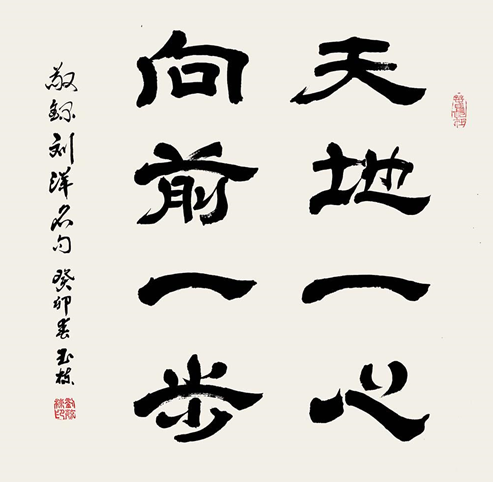 天地一心
向前一步
敬録刘洋名句 癸卯春 玉栋